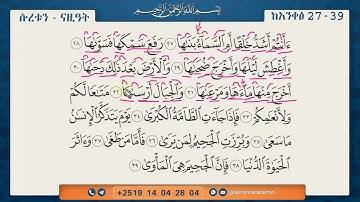 ሱረቱን - ናዚዓት
بِسْمِ اللَّهِ الرَّحْمَٰنِ الرَّحِيمِ
ከአንቀፅ 27 - 39
ءَأَنتُمْ أَشَدُّ خَلْقًا أَمِ السَّمَاءُ بَنَاهَا ٢٧ رَفَعَ سَمْكَهَا فَسَوَّاهَا ٢٨
وَأَغْطَشَ لَيْلَهَا وَأَخْرَجَ ضُحَاهَا ٢٩ وَالْأَرْضَ بَعْدَ ذَٰلِكَ دَحَاهَا ٣٠
أَخْرَجَ مِنْهَا مَاءَهَا وَمَرْعَاهَا ٣١ وَالْجِبَالَ أَرْسَاهَا ٣٢ مَتَاعًا لَّكُمْ
وَلِأَنْعَامِكُمْ ٣٣ فَإِذَا جَاءَتِ الطَّامَّةُ الْكُبْرَىٰ ٣٤ يَوْمَ يَتَذَكَّرُ الْإِنسَانُ
مَا سَعَىٰ ٣٥ وَبُرِّزَتِ الْجَحِيمُ لِمَن يَرَىٰ ٣٦ فَأَمَّا مَن طَغَىٰ ٣٧ وَءَاثَرَ
الْحَيَاةَ الدُّنْيَا ٣٨ فَإِنَّ الْجَحِيمَ هِيَ الْمَأْوَىٰ ٣٩
+2519 14 04 28 04